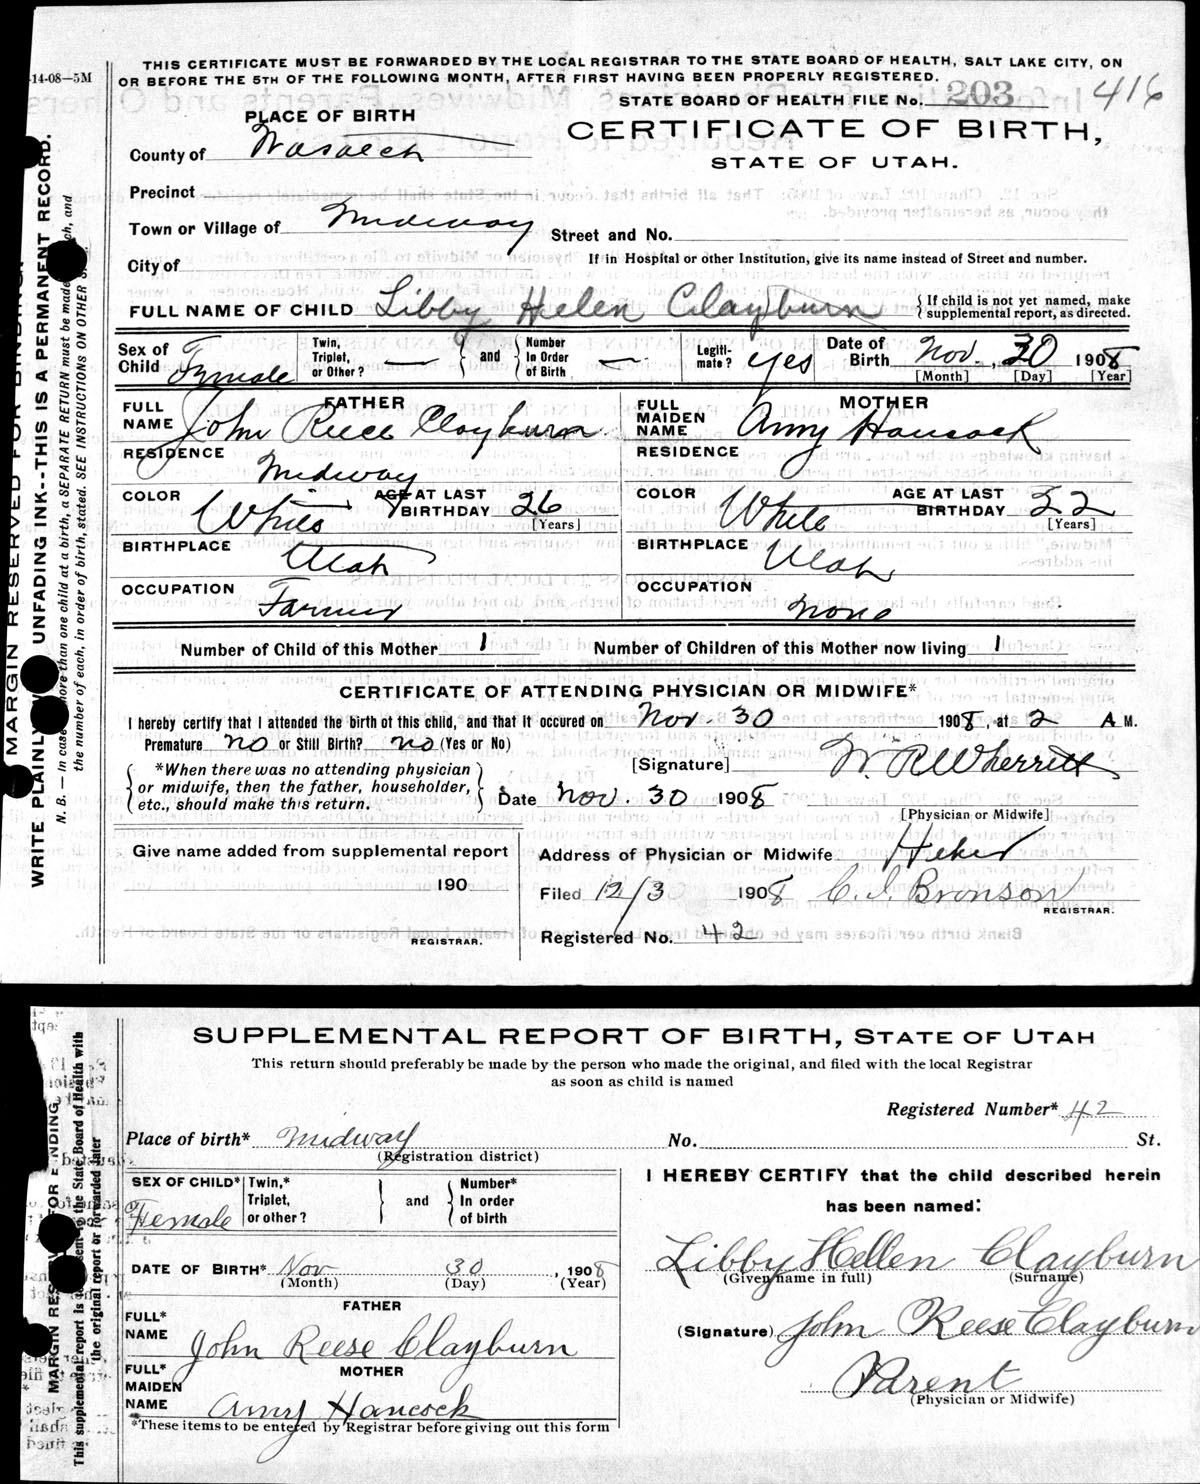 -14-08—5M
THIS CERTIFICATE MUST BE FORWARDED BY THE LOCAL REGISTRAR TO THE STATE BOARD OF HEALTH, SALT LAKE CITY, ON
OR BEFORE THE 5TH OF THE FOLLOWING MONTH, AFTER FIRST HAVING BEEN PROPERLY REGISTERED.
STATE BOARD OF HEALTH FILE No. 203 416
PLACE OF BIRTH
CERTIFICATE OF BIRTH,
STATE OF UTAH.
County of Wasatch
Precinct
Town or Village of Midway
Street and No.
City of
If in Hospital or other Institution, give its name instead of Street and number.
FULL NAME OF CHILD Libby Helen Clayburn
If child is not yet named, make
supplemental report, as directed.
Sex of Child Female
Twin, Triplet, or Other? —
and
Number In Order of Birth —
Legiti-mate? yes
Date of Birth Nov. 30 1908
[Month] [Day] [Year]
FATHER
FULL NAME John Reece Clayburn
RESIDENCE Midway
COLOR White
AGE AT LAST BIRTHDAY 26
[Years]
BIRTHPLACE Utah
OCCUPATION Farmer
MOTHER
FULL MAIDEN NAME Amy Hancock
RESIDENCE
COLOR White
AGE AT LAST BIRTHDAY 22
[Years]
BIRTHPLACE Utah
OCCUPATION None
Number of Child of this Mother 1
Number of Children of this Mother now living 1
CERTIFICATE OF ATTENDING PHYSICIAN OR MIDWIFE*
I hereby certify that I attended the birth of this child, and that it occured on Nov. 30 1908, at 2 A M.
Premature no or Still Birth? no (Yes or No)
*When there was no attending physician
or midwife, then the father, householder,
etc., should make this return.
[Signature] W. R Wherritt
Date Nov. 30 1908
[Physician or Midwife]
Give name added from supplemental report
190
REGISTRAR.
Address of Physician or Midwife Heber
Filed 12/3 1908 C. I. Bronson
REGISTRAR.
Registered No. 42
MARGIN RESERVED FOR BINDING
WRITE PLAINLY UNFADING INK--THIS IS A PERMANENT RECORD.
N. B. — In case more than one child at a birth, a SEPARATE RETURN must be made ch, and
the number of each, in order of birth, stated. SEE INSTRUCTIONS ON OTHER
SUPPLEMENTAL REPORT OF BIRTH, STATE OF UTAH
This return should preferably be made by the person who made the original, and filed with the local Registrar
as soon as child is named
Registered Number* 42
Place of birth* Midway No. St.
(Registration district)
SEX OF CHILD* Female
Twin,* Triplet, or other?
and
Number* In order of birth
DATE OF BIRTH* Nov 30, 1908
(Month) (Day) (Year)
FATHER
FULL* NAME John Reese Clayburn
MOTHER
FULL* MAIDEN NAME Amy Hancock
*These items to be entered by Registrar before giving out this form
I HEREBY CERTIFY that the child described herein
has been named:
Libby Hellen Clayburn
(Given name in full) (Surname)
(Signature) John Reese Clayburn
Parent
(Physician or Midwife)
MARGIN RESERVED FOR BINDING
This supplemental report is sent to the State Board of Health with
the original report or forwarded later